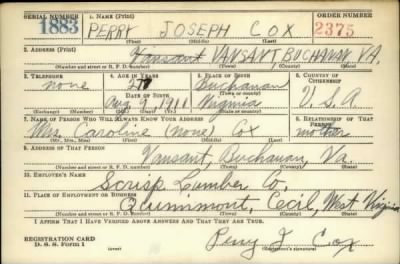 SERIAL NUMBER 1. NAME (Print) ORDER NUMBER
1883 PERRY JOSEPH COX 2375
(First) (Middle) (Last)
2. ADDRESS (Print)
Vansant VANSANT, BUCHANAN VA.
(Number and street or R. F. D. number) (Town) (County) (State)
3. TELEPHONE 4. AGE IN YEARS 5. PLACE OF BIRTH 6. COUNTRY OF CITIZENSHIP
none Buchanan
DATE OF BIRTH (Town or county)
Aug 9, 1911 Virginia U.S.A
(Mo.) (Day) (Yr.) (State or country)
7. NAME OF PERSON WHO WILL ALWAYS KNOW YOUR ADDRESS 8. RELATIONSHIP OF THAT PERSON
Mrs. Caroline (none) Cox mother
(Mr., Mrs., Miss) (First) (Middle) (Last)
9. ADDRESS OF THAT PERSON
Vansant, Buchanan, Va.
(Number and street or R. F. D. number) (Town) (County) (State)
10. EMPLOYER'S NAME
Lumber Co.
11. PLACE OF EMPLOYMENT OR BUSINESS
Cecil, West Virginia
(Number and street or R. F. D. number) (Town) (County) (State)
I AFFIRM THAT I HAVE VERIFIED ABOVE ANSWERS AND THAT THEY ARE TRUE.
REGISTRATION CARD
D. S. S. Form 1 Perry J Cox
(Registrant's signature)